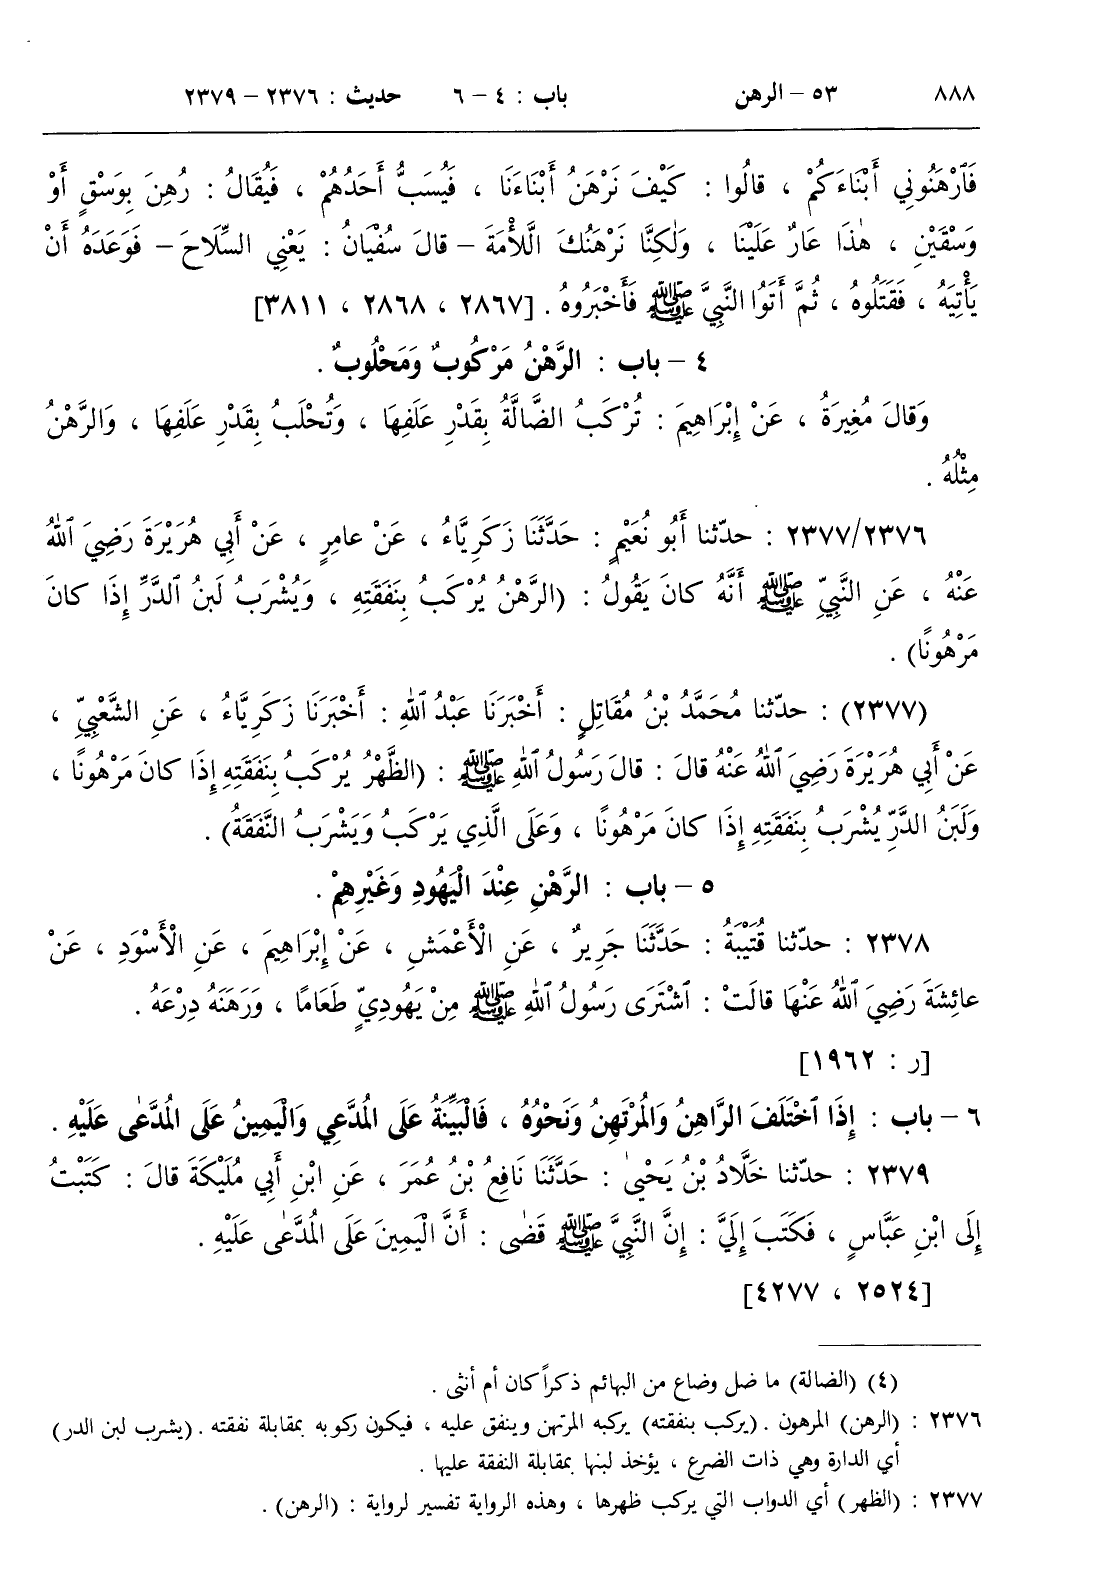 ٨٨٨ ٥٣ – الرهن باب : ٤ – ٦ حديث : ٢٣٧٦ – ٢٣٧٩
فَٱرْهَنُونِي أَبْنَاءَكُمْ ، قالُوا : كَيْفَ نَرْهَنُ أَبْنَاءَنَا ، فَيُسَبُّ أَحَدُهُمْ ، فَيُقَالُ : رُهِنَ بِوَسْقٍ أَوْ
وَسْقَيْنِ ، هٰذَا عَارٌ عَلَيْنَا ، وَلٰكِنَّا نَرْهَنُكَ اللَّأْمَةَ – قالَ سُفْيَانُ : يَعْنِي السِّلَاحَ – فَوَعَدَهُ أَنْ
يَأْتِيَهُ ، فَقَتَلُوهُ ، ثُمَّ أَتَوُا النَّبِيَّ ﷺ فَأَخْبَرُوهُ . [٢٨٦٧ ، ٢٨٦٨ ، ٣٨١١]
٤ – باب : الرَّهْنُ مَرْكُوبٌ وَمَحْلُوبٌ .
وَقالَ مُغِيرَةُ ، عَنْ إِبْرَاهِيمَ : تُرْكَبُ الضَّالَّةُ بِقَدْرِ عَلَفِهَا ، وَتُحْلَبُ بِقَدْرِ عَلَفِهَا ، وَالرَّهْنُ
مِثْلُهُ .
٢٣٧٧/٢٣٧٦ : حدّثنا أَبُو نُعَيْمٍ : حَدَّثَنَا زَكَرِيَّاءُ ، عَنْ عامِرٍ ، عَنْ أَبِي هُرَيْرَةَ رَضِيَ ٱللهُ
عَنْهُ ، عَنِ النَّبِيِّ ﷺ أَنَّهُ كانَ يَقُولُ : (الرَّهْنُ يُرْكَبُ بِنَفَقَتِهِ ، وَيُشْرَبُ لَبنُ ٱلدَّرِّ إِذَا كانَ
مَرْهُونًا) .
(٢٣٧٧) : حدّثنا مُحَمَّدُ بْنُ مُقَاتِلٍ : أَخْبَرَنَا عَبْدُ ٱللهِ : أَخْبَرَنَا زَكَرِيَّاءُ ، عَنِ الشَّعْبِيِّ ،
عَنْ أَبِي هُرَيْرَةَ رَضِيَ ٱللهُ عَنْهُ قالَ : قالَ رَسُولُ ٱللهِ ﷺ : (الظَّهْرُ يُرْكَبُ بِنَفَقَتِهِ إِذَا كانَ مَرْهُونًا ،
وَلَبَنُ الدَّرِّ يُشْرَبُ بِنَفَقَتِهِ إِذَا كانَ مَرْهُونًا ، وَعَلَى الَّذِي يَرْكَبُ وَيَشْرَبُ النَّفَقَةُ) .
٥ – باب : الرَّهْنِ عِنْدَ الْيَهُودِ وَغَيْرِهِمْ .
٢٣٧٨ : حدّثنا قُتَيْبَةُ : حَدَّثَنَا جَرِيرٌ ، عَنِ الْأَعْمَشِ ، عَنْ إِبْرَاهِيمَ ، عَنِ الْأَسْوَدِ ، عَنْ
عائِشَةَ رَضِيَ ٱللهُ عَنْهَا قالَتْ : ٱشْتَرَى رَسُولُ ٱللهِ ﷺ مِنْ يَهُودِيٍّ طَعَامًا ، وَرَهَنَهُ دِرْعَهُ .
[ر : ١٩٦٢]
٦ – باب : إِذَا ٱخْتَلَفَ الرَّاهِنُ وَالْمُرْتَهِنُ وَنَحْوُهُ ، فَالْبَيِّنَةُ عَلَى الْمُدَّعِي وَالْيَمِينُ عَلَى الْمُدَّعٰى عَلَيْهِ .
٢٣٧٩ : حدّثنا خَلَّادُ بْنُ يَحْيٰى : حَدَّثَنَا نَافِعُ بْنُ عُمَرَ ، عَنِ ابْنِ أَبِي مُلَيْكَةَ قالَ : كَتَبْتُ
إِلَى ابْنِ عَبَّاسٍ ، فَكَتَبَ إِلَيَّ : إِنَّ النَّبِيَّ ﷺ قَضٰى : أَنَّ الْيَمِينَ عَلَى الْمُدَّعٰى عَلَيْهِ .
[٢٥٢٤ ، ٤٢٧٧]
(٤) (الضالة) ما ضل وضاع من البهائم ذكراً كان أم أنثى .
٢٣٧٦ : (الرهن) المرهون . (يركب بنفقته) يركبه المرتهن وينفق عليه ، فيكون ركوبه بمقابلة نفقته . (يشرب لبن الدر)
أي الدارة وهي ذات الضرع ، يؤخذ لبنها بمقابلة النفقة عليها .
٢٣٧٧ : (الظهر) أي الدواب التي يركب ظهرها ، وهذه الرواية تفسير لرواية : (الرهن) .